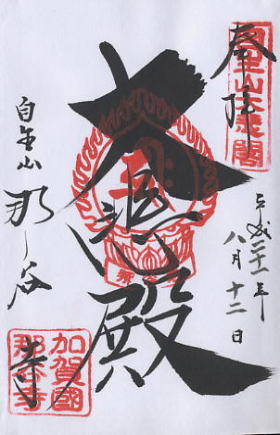 奉拝
自生山大悲閣
平成二十一年
八月十二日
大悲殿
自生山
那谷寺
加賀國
那谷寺